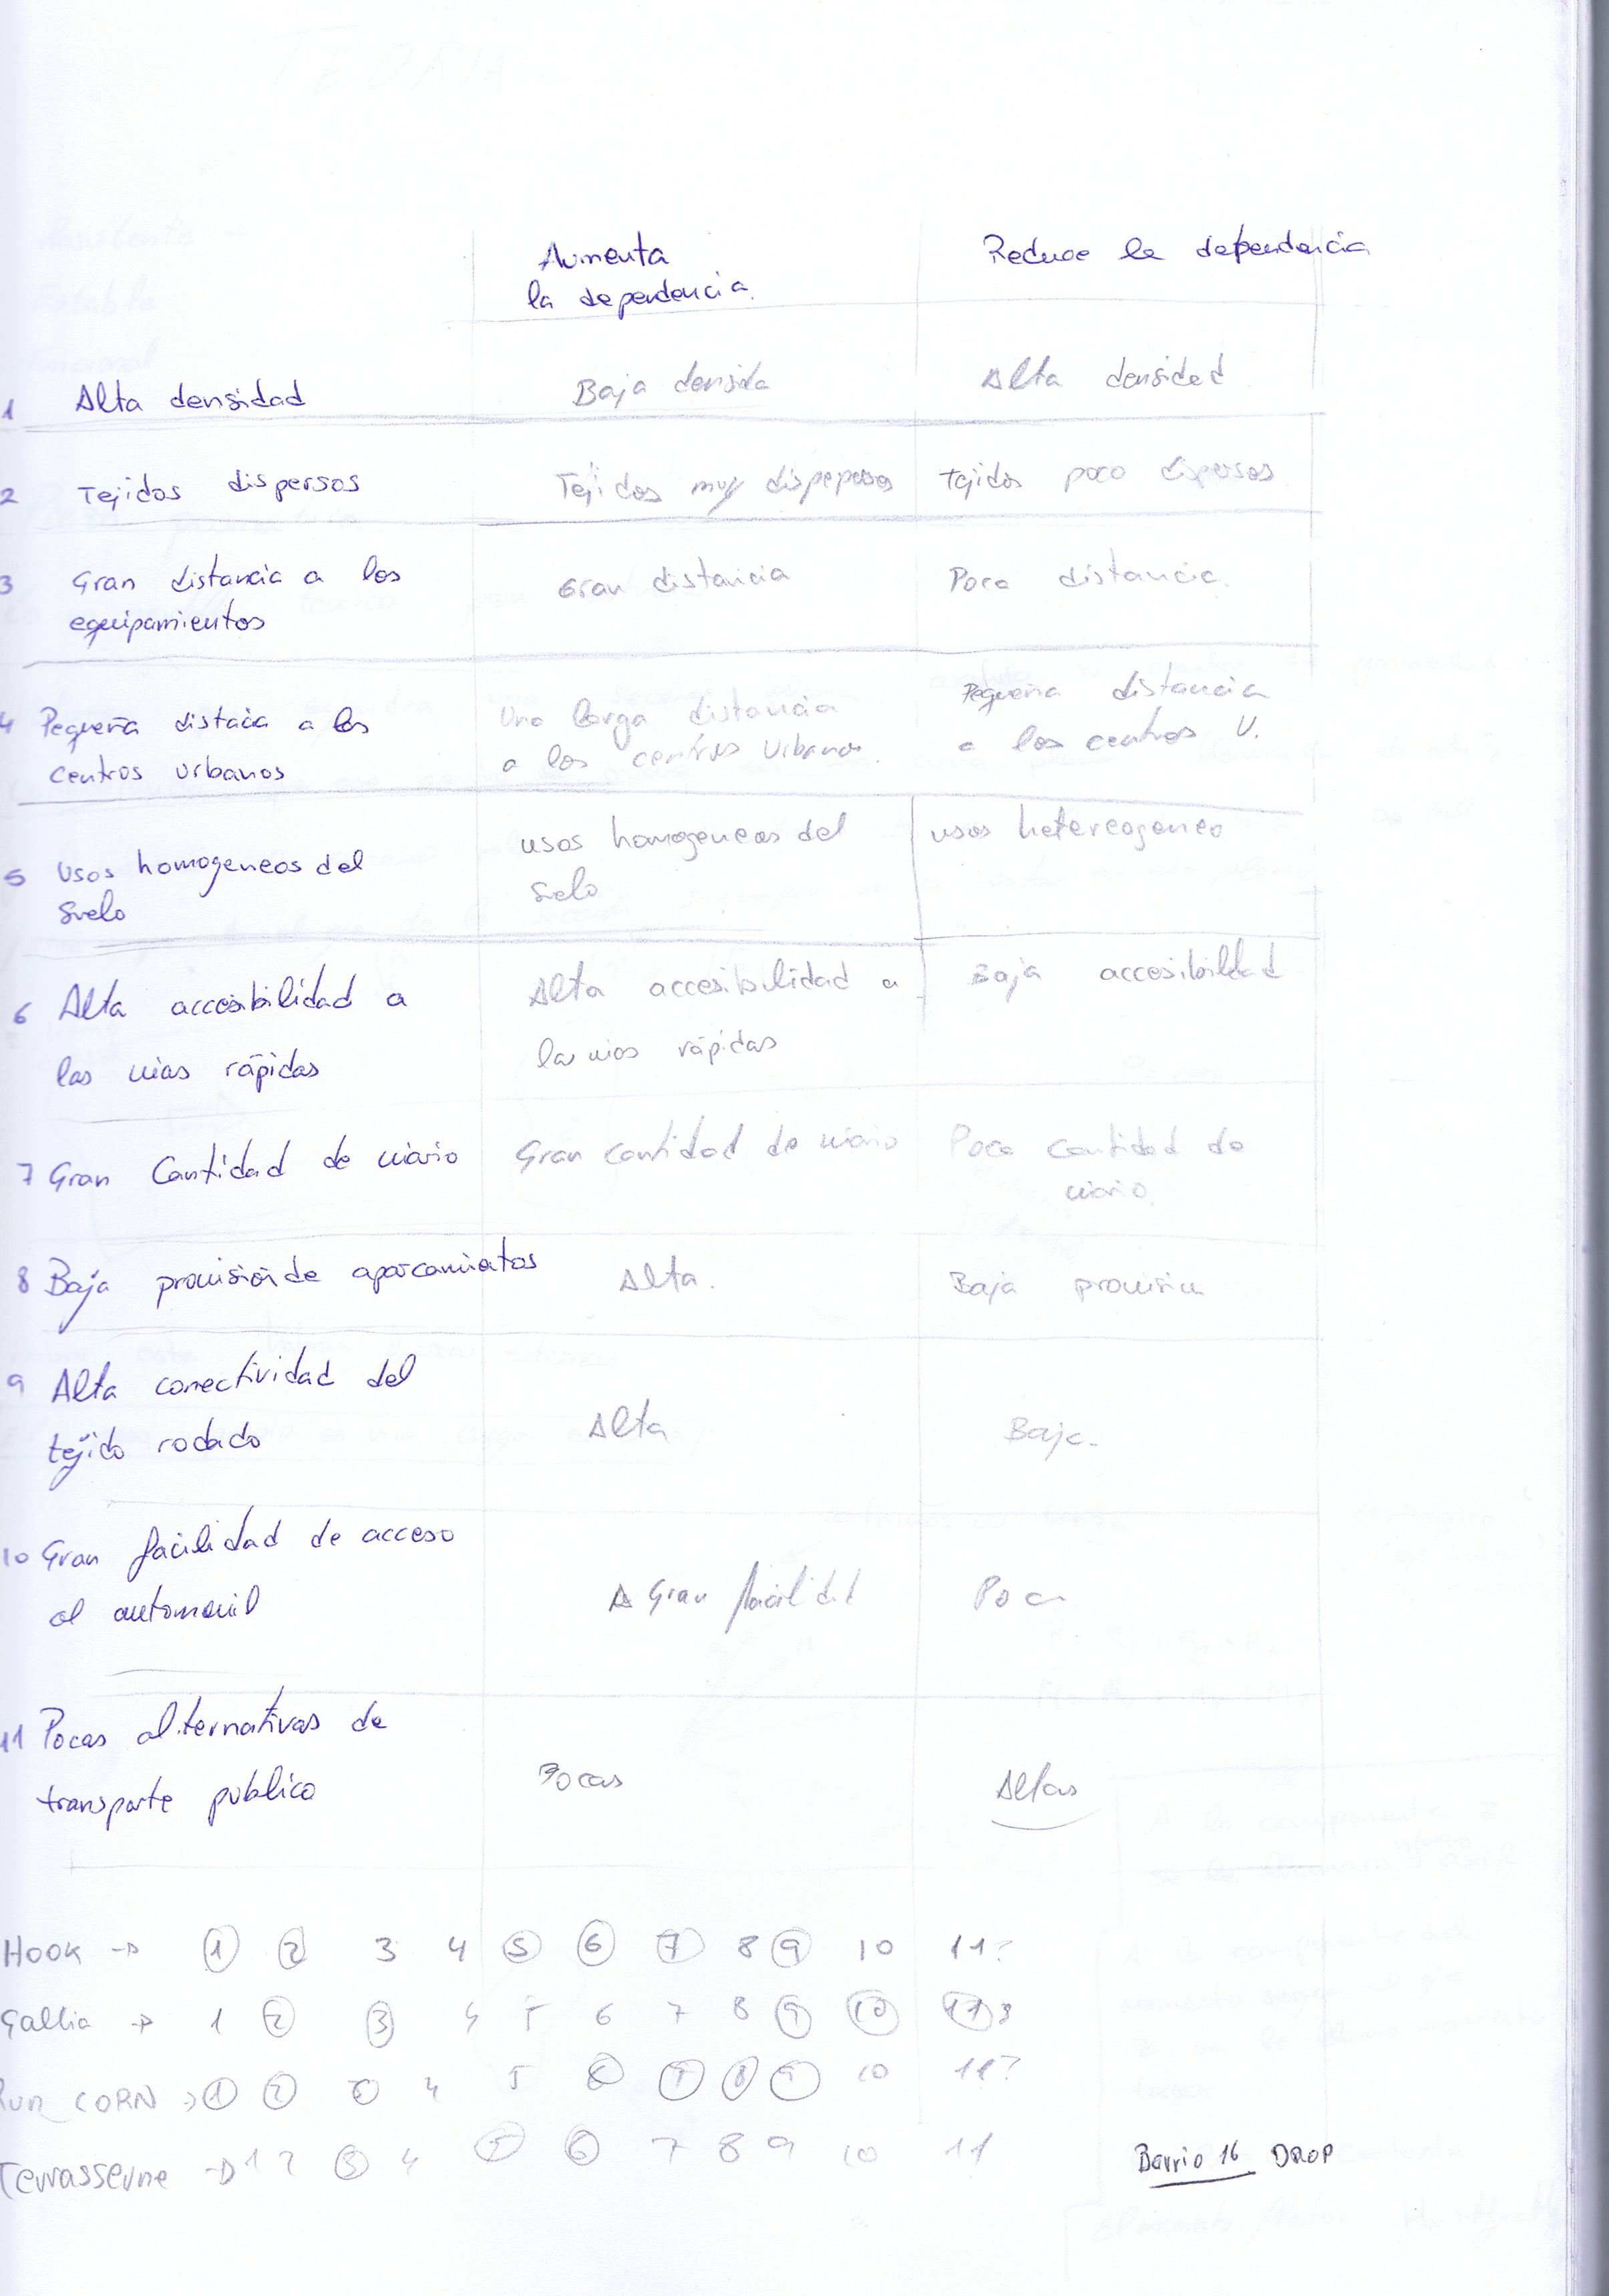 Aumenta
la dependencia.
Reduce la dependencia
1 Alta densidad
Baja densida
Alta densidad
2 Tejidos dispersos
Tejidos muy dispepersos
Tejidos poco dispersos
3 Gran distancia a los
equipamientos
Gran distancia
Poca distancia.
4 Pequeña distacia a los
centros urbanos
Una larga distancia
a los centros Urbanos.
Pequeña distancia
a los centros U.
5 Usos homogeneos del
Suelo
usos homogeneos del
suelo
usos hetereogeneo
6 Alta accesibilidad a
las vias rápidas
Alta accesibilidad a
las vias rápidas
Baja accesibilidad
7 Gran Cantidad de viario
Gran cantidad de viario
Poca cantidad de
viario.
8 Baja provisión de aparcamientos
Alta.
Baja provision
9 Alta conectividad del
tejido rodado
Alta
Baja.
10 Gran facilidad de acceso
al automovil
Gran facilidad
Poca
11 Pocas alternativas de
transporte publico
Pocas
Altas
HOOK → 1 2 3 4 5 6 7 8 9 10 11?
Gallia → 1 2 3 4 5 6 7 8 9 10 11
CORN → 1 2 3 4 5 6 7 8 9 10 11?
Terrasserne → 1 2 3 4 5 6 7 8 9 10 11
Barrio 16 DROP